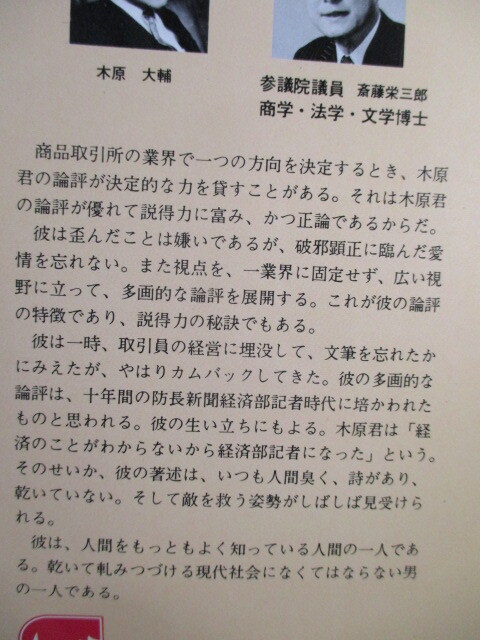 木原　大輔
参議院議員　斎藤栄三郎
商学・法学・文学博士
　商品取引所の業界で一つの方向を決定するとき、木原
君の論評が決定的な力を貸すことがある。それは木原君
の論評が優れて説得力に富み、かつ正論であるからだ。
　彼は歪んだことは嫌いであるが、破邪顕正に臨んだ愛
情を忘れない。また視点を、一業界に固定せず、広い視
野に立って、多画的な論評を展開する。これが彼の論評
の特徴であり、説得力の秘訣でもある。
　彼は一時、取引員の経営に埋没して、文筆を忘れたか
にみえたが、やはりカムバックしてきた。彼の多画的な
論評は、十年間の防長新聞経済部記者時代に培かわれた
ものと思われる。彼の生い立ちにもよる。木原君は「経
済のことがわからないから経済部記者になった」という。
そのせいか、彼の著述は、いつも人間臭く、詩があり、
乾いていない。そして敵を救う姿勢がしばしば見受けら
れる。
　彼は、人間をもっともよく知っている人間の一人であ
る。乾いて軋みつづける現代社会になくてはならない男
の一人である。